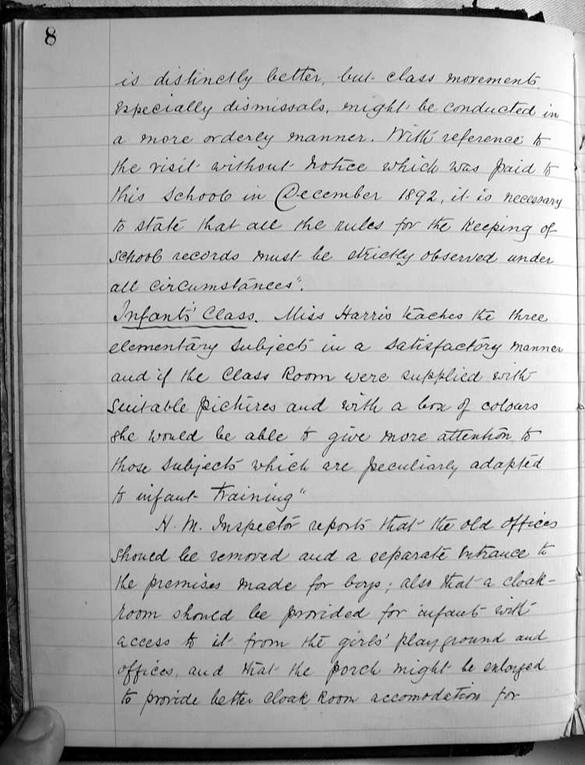 8
is distinctly better, but class movements
especially dismissals, might be conducted in
a more orderly manner. With reference to
the visit without notice which was paid to
this school in December 1892, it is necessary
to state that all the rules for the keeping of
school records must be strictly observed under
all circumstances".
Infants' Class. Miss Harris teaches the three
elementary subjects in a satisfactory manner
and if the Class Room were supplied with
suitable pictures and with a box of colours
she would be able to give more attention to
those subjects which are peculiarly adapted
to infant training"
H. M. Inspector reports that the old offices
should be removed and a separate entrance to
the premises made for boys; also that a cloak-
room should be provided for infants with
access to it from the girls' playground and
offices, and that the porch might be enlarged
to provide better Cloak Room accomodation for